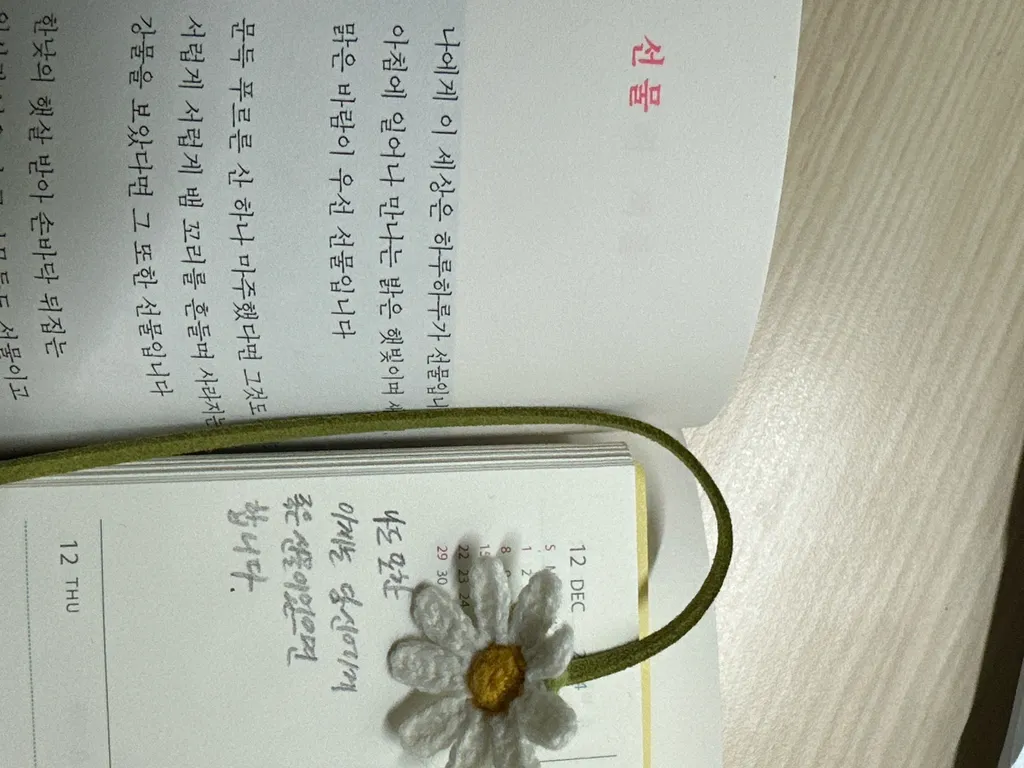 선물
나에게 이 세상은 하루하루가 선물입니
아침에 일어나 만나는 밝은 햇빛이며 새
맑은 바람이 우선 선물입니다
문득 푸르른 산 하나 마주했다면 그것도
서럽게 서럽게 뱀 꼬리를 흔들며 사라지는
강물을 보았다면 그 또한 선물입니다
한낮의 햇살 받아 손바닥 뒤집는
선물이고
12 DEC
S M
1 2
8 9
15
22 23 24
29 30
나도 또한
이제는 당신에게
좋은 선물이었으면
합니다.
12 THU